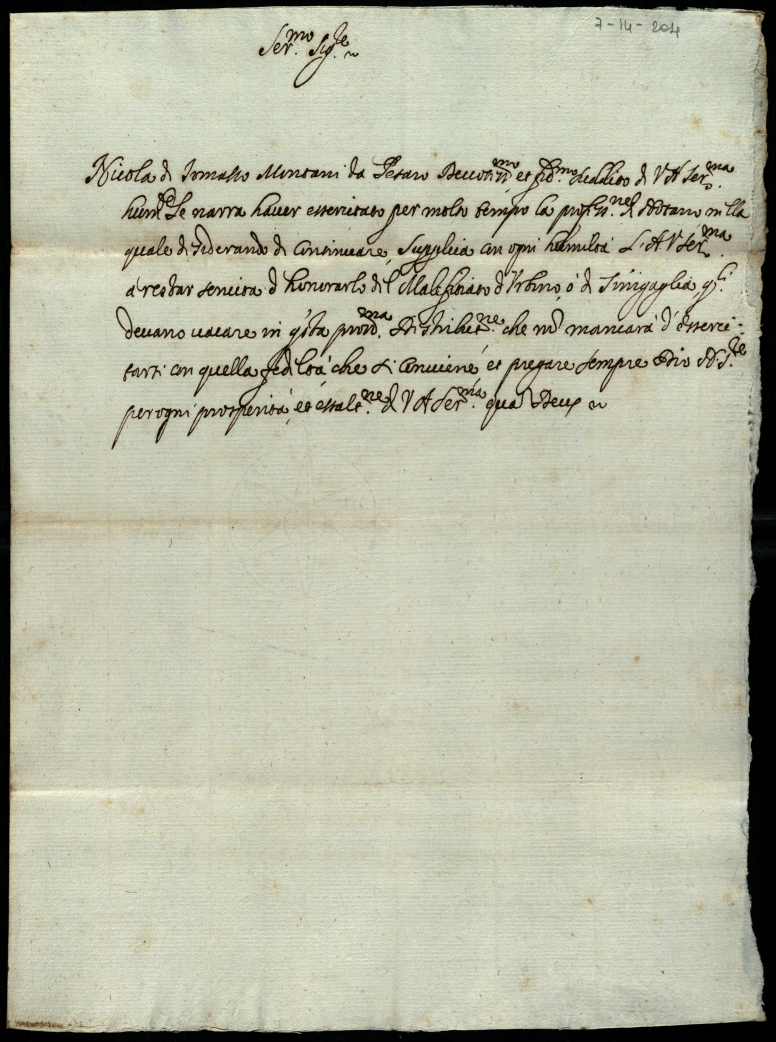 7-14-204
Ser.mo Sig.re
Nicola di Tomasso Montani da Pesaro Devotiss.mo et fid.mo suddito di V A Ser.ma
hum.te Le narra haver essercitato per molto tempo la profess.ne di Notaro nella
quale desiderando di Continuare, Supplica con ogni humiltà L'A V Ser.ma
a restar servita d'honorarlo del Malefitiato d'Urbino, ó di Sinigaglia q.li
devano vacare in q.sta pross.ma Distribut.ne, che nō mancará d'esserci-
tarsi con quella fedeltá che si conviene, et pregare sempre Dio N. S.re
per ogni prosperitá, et essalt.ne di V A Ser.ma quā Deus